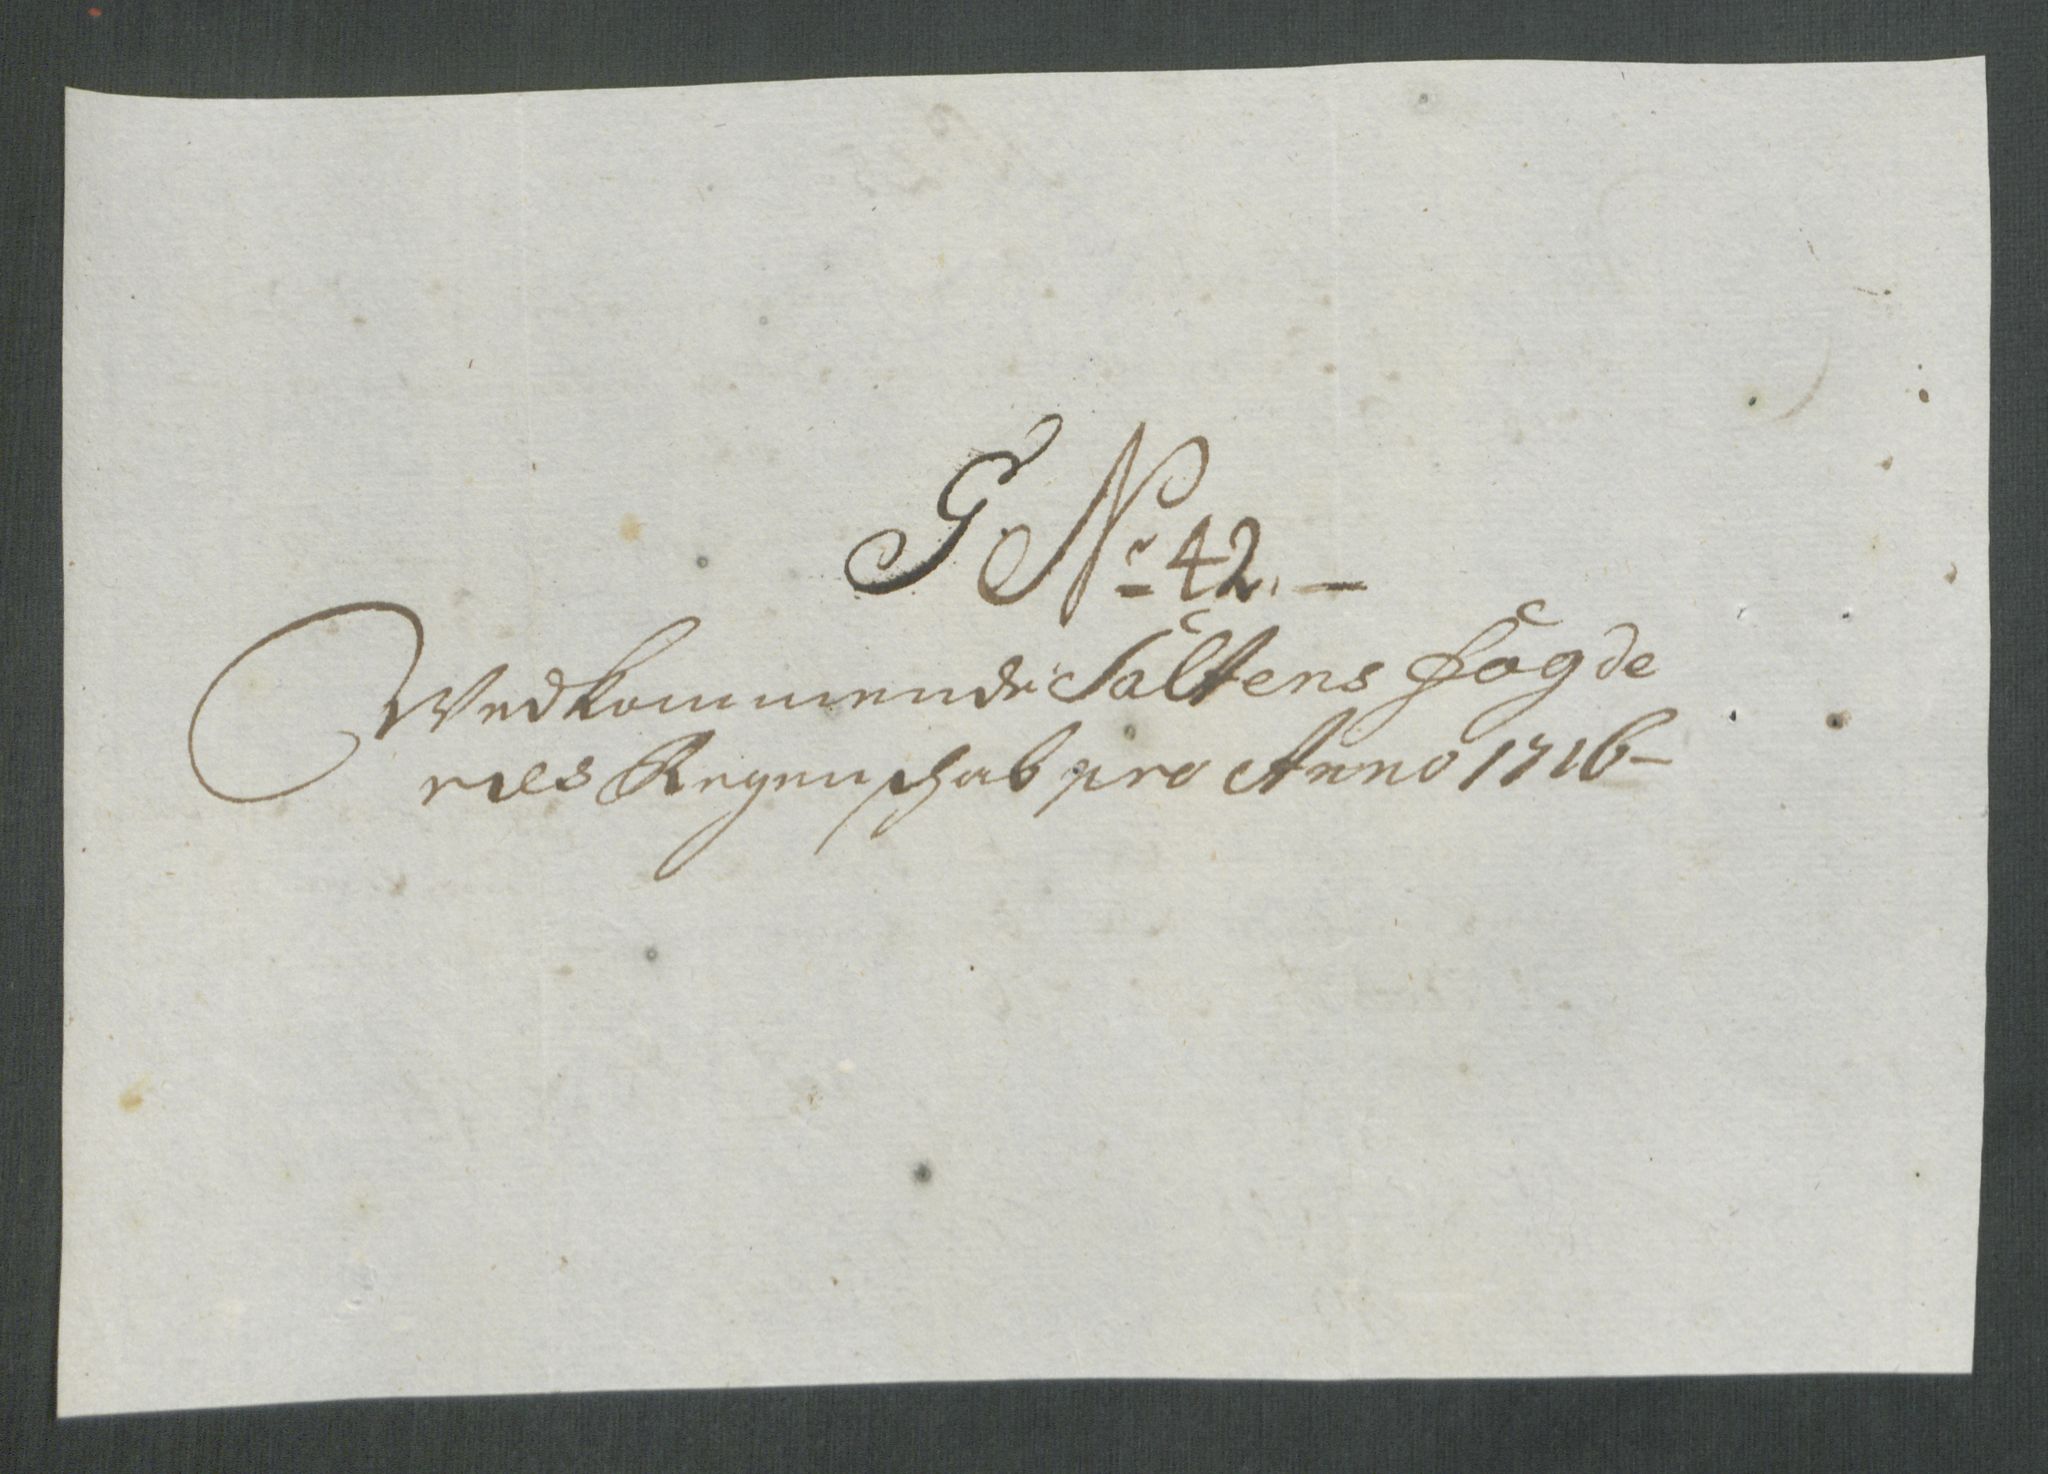 G. No 42. —
Wedkommende Saltens Fogde
ries Regenschab pro Anno 1716 —